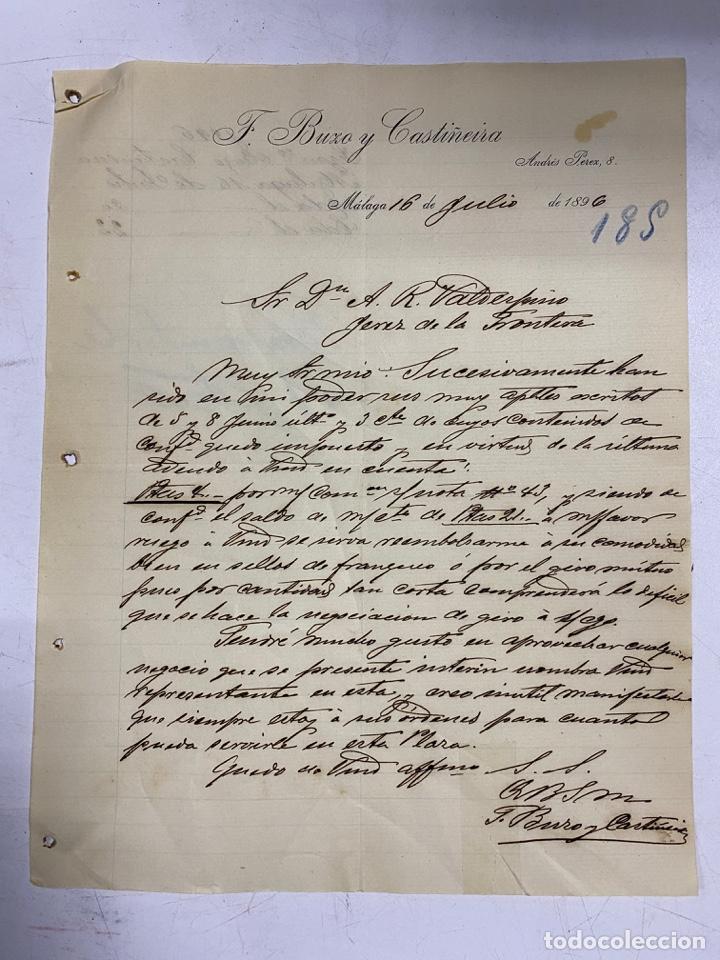 F. Buzo y Castiñeira
Andrés Perez, 8.
Málaga 16 de Julio de 1896
185
Sr Dn A. R. Valdespino
Jerez de la Frontera
Muy Sr mio: Sucesivamente han
sido en mi poder sus muy aptles escritos
de 5 y 8 Junio últo y 3 cte de cuyos contenidos de
confd quedo impuesto y en virtud de la última
adeudo à Vmd en cuenta:
Ptas 4.- por m/ com on s/ nota Nº 43, y siendo de
confd el saldo de m/ cta de Ptas 21.- à m/ favor
ruego à Vmd se sirva reembolsarme à su comodidad
bien en sellos de franqueo ó por el giro mútuo
pues por cantidad tan corta comprenderá lo dificil
que se hace la negociacion de giro à s/ cgo.
Tendré mucho gusto en aprovechar cualquier
negocio que se presente interin nombra Vmd
representante en esta, y creo inutil manifestarle
que siempre estoy à sus órdenes para cuanto
pueda servirle en esta Plaza.
Quedo de Vmd affmo S. S.
Q B S M
F. Buzo y Castiñeira
todocoleccion
todocoleccion.net